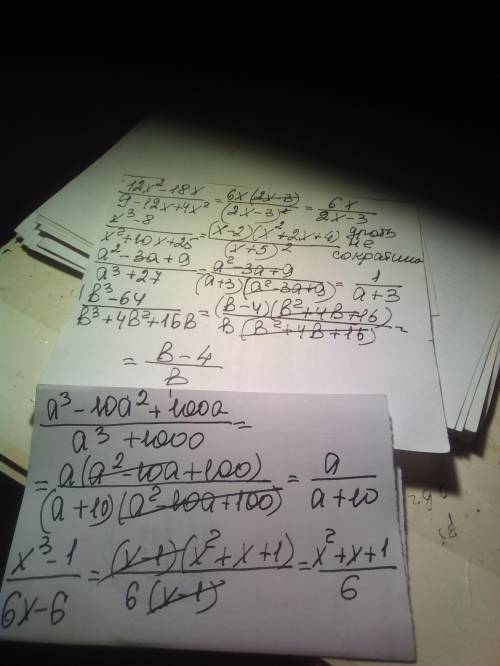 (12x²-18x)/(9-12x+4x²) = (6x(2x-3))/((2x-3)²) = 6x/(2x-3)
(x³-8)/(x²+10x+25) = ((x-2)(x²+2x+4))/((x+5)²) дробь не сократима
(a²-3a+9)/(a³+27) = (a²-3a+9)/((a+3)(a²-3a+9)) = 1/(a+3)
(b³-64)/(b³+4b²+16b) = ((b-4)(b²+4b+16))/(b(b²+4b+16)) =
= (b-4)/b
(a³-10a²+100a)/(a³+1000) =
= (a(a²-10a+100))/((a+10)(a²-10a+100)) = a/(a+10)
(x³-1)/(6x-6) = ((x-1)(x²+x+1))/(6(x-1)) = (x²+x+1)/6